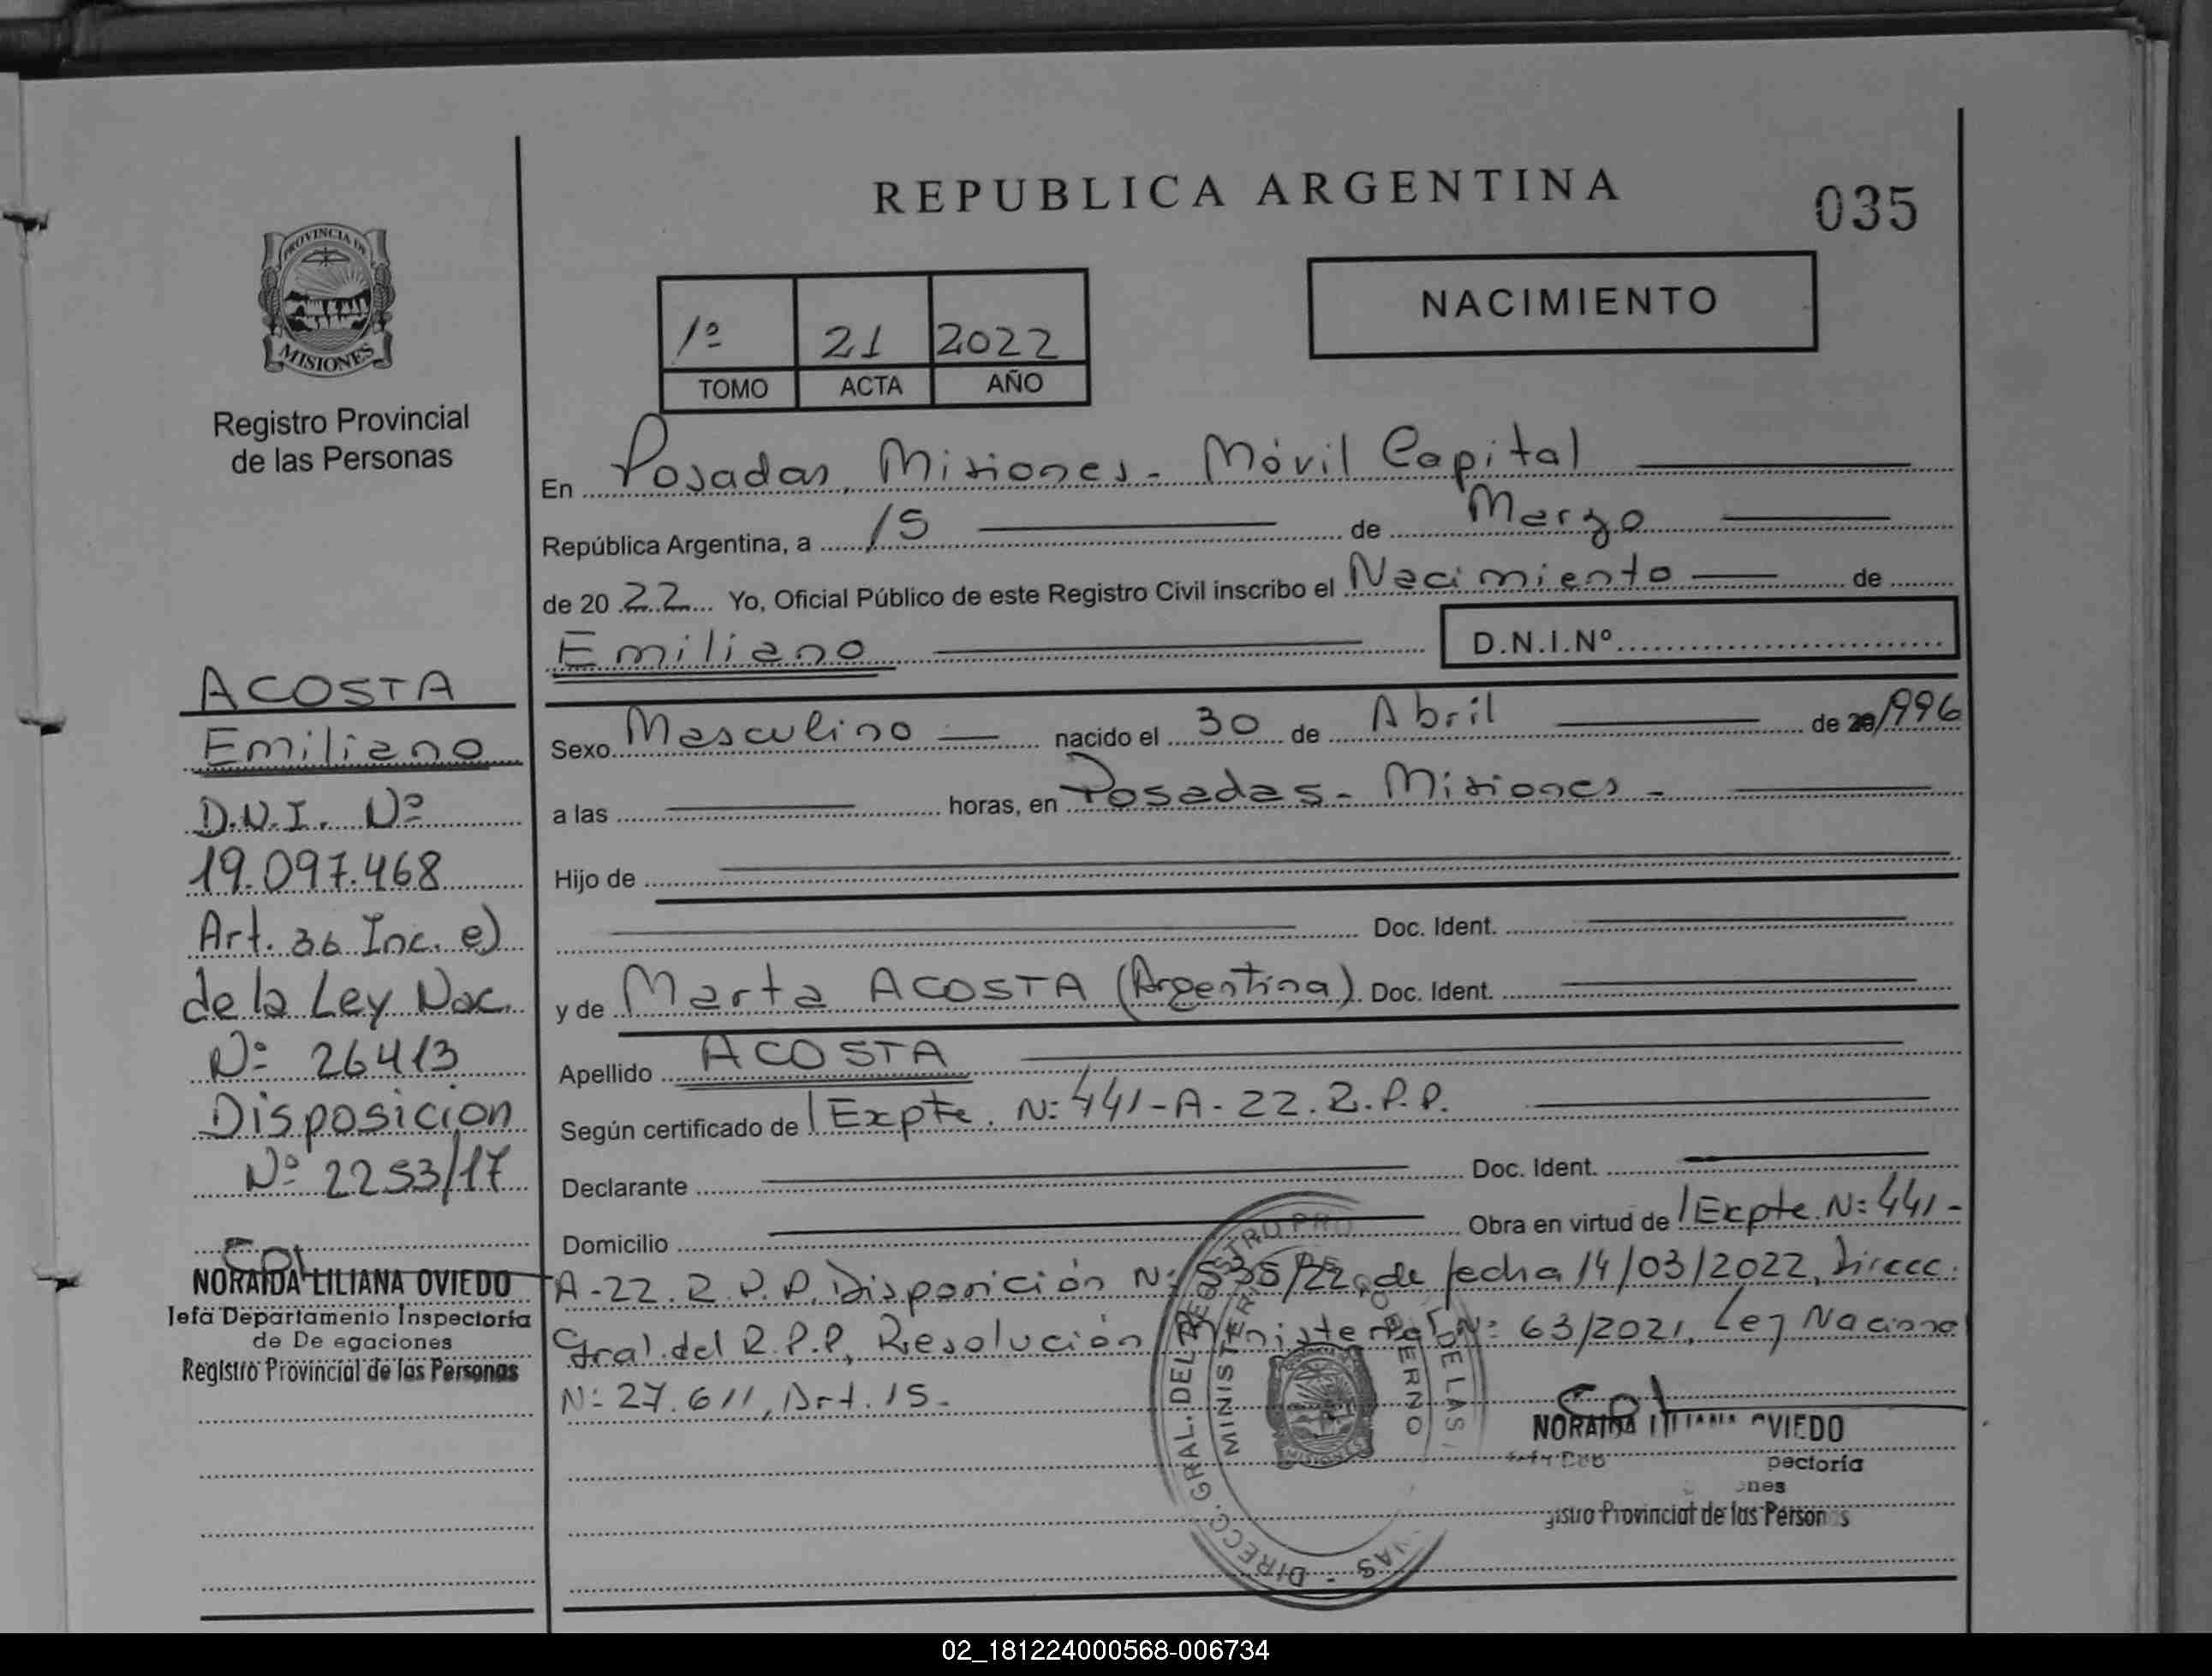 REPUBLICA ARGENTINA
035
PROVINCIA DE
MISIONES
Registro Provincial
de las Personas
1º 21 2022
TOMO ACTA AÑO
NACIMIENTO
En Posadas, Misiones - Móvil Capital
República Argentina, a 15 de Marzo
de 2022 Yo, Oficial Público de este Registro Civil inscribo el Nacimiento de
Emiliano D.N.I.Nº
Sexo Masculino nacido el 30 de Abril de 1996
a las horas, en Posadas - Misiones -
Hijo de
Doc. Ident.
y de Marta ACOSTA (Argentina) Doc. Ident.
Apellido ACOSTA
Según certificado de Expte. Nº 441-A-22.R.P.P.
Declarante Doc. Ident.
Domicilio Obra en virtud de Expte. Nº 441-
A-22.R.P.P. Disposición Nº 535/22, de fecha 14/03/2022, Direcc.
Gral. del R.P.P, Resolución Ministerial Nº 63/2021, Ley Naciona
Nº 27.611, Art. 15.-
ACOSTA
Emiliano
D.N.I. Nº
19.097.468
Art. 36 Inc. e)
de la Ley Nac.
Nº 26413
Disposicion
Nº 2253/17
NORAIDA LILIANA OVIEDO
Jefa Departamento Inspectoría
de De egaciones
Registro Provincial de las Personas
DIRECC. GRAL. DEL REGISTRO PRO DE LAS
MINISTERIO GOBIERNO
MISIONES
NORAIDA LILIANA OVIEDO
pectoría
ones
gistro Provincial de las Person s
02_181224000568-006734